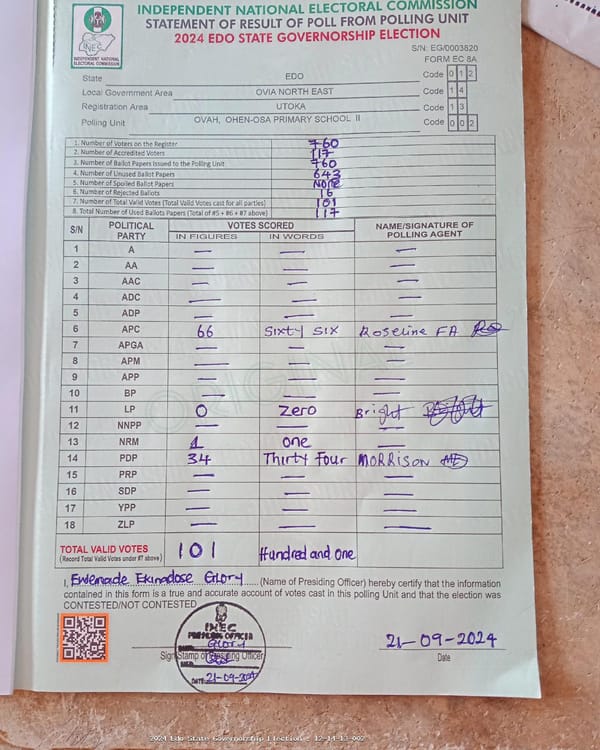 INDEPENDENT NATIONAL ELECTORAL COMMISSION
STATEMENT OF RESULT OF POLL FROM POLLING UNIT
2024 EDO STATE GOVERNORSHIP ELECTION
INEC
INDEPENDENT NATIONAL ELECTORAL COMMISSION
S/N: EG/0003820
FORM EC 8A
State EDO Code 0 1 2
Local Government Area OVIA NORTH EAST Code 1 4
Registration Area UTOKA Code 1 3
Polling Unit OVAH, OHEN-OSA PRIMARY SCHOOL II Code 0 0 2
1. Number of Voters on the Register 760
2. Number of Accredited Voters 117
3. Number of Ballot Papers Issued to the Polling Unit 760
4. Number of Unused Ballot Papers 643
5. Number of Spoiled Ballot Papers None
6. Number of Rejected Ballots 16
7. Number of Total Valid Votes (Total Valid Votes cast for all parties) 101
8. Total Number of Used Ballots Papers (Total of #5 + #6 + #7 above) 117
S/N POLITICAL PARTY VOTES SCORED NAME/SIGNATURE OF POLLING AGENT
IN FIGURES IN WORDS
1 A — — —
2 AA — — —
3 AAC — — —
4 ADC — — —
5 ADP — — —
6 APC 66 Sixty six Roseline FA
7 APGA — — —
8 APM — — —
9 APP — — —
10 BP — — —
11 LP 0 Zero Bright
12 NNPP — — —
13 NRM 1 one —
14 PDP 34 Thirty four MORRISON
15 PRP — — —
16 SDP — — —
17 YPP — — —
18 ZLP — — —
TOTAL VALID VOTES 101 Hundred and one
(Record Total Valid Votes under #7 above)
I, Ewemade Ekinadose Glory (Name of Presiding Officer) hereby certify that the information
contained in this form is a true and accurate account of votes cast in this polling Unit and that the election was
CONTESTED/NOT CONTESTED
INEC
PRESIDING OFFICER
GLORY
DATE: 21-09-2024
Sign/Stamp of Presiding Officer
21-09-2024
Date
2024 Edo State Governorship Election - 12-14-13-002